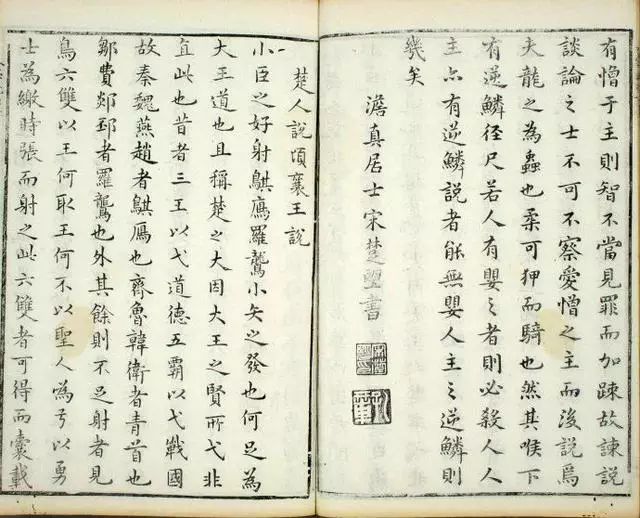 有憎于主則智不當見罪而加疎故諌說
談論之士不可不察愛憎之主而後說焉
夫龍之為蟲也柔可狎而騎也然其喉下
有逆鱗徑尺若人有嬰之者則必殺人人
主亦有逆鱗說者能無嬰人主之逆鱗則
幾矣
澹真居士宋楚望書
楚人說頃襄王說
小臣之好射鶀鴈羅鸗小矢之發也何足為
大王道也且稱楚之大因大王之賢所弋非
直此也昔者三王以弋道德五霸以弋戰國
故秦魏燕趙者鶀鴈也齊魯韓衛者青首也
鄒費郯邳者羅鸗也外其餘則不足射者見
鳥六雙以王何取王何不以聖人為弓以勇
士為繳時張而射之此六雙者可得而囊載